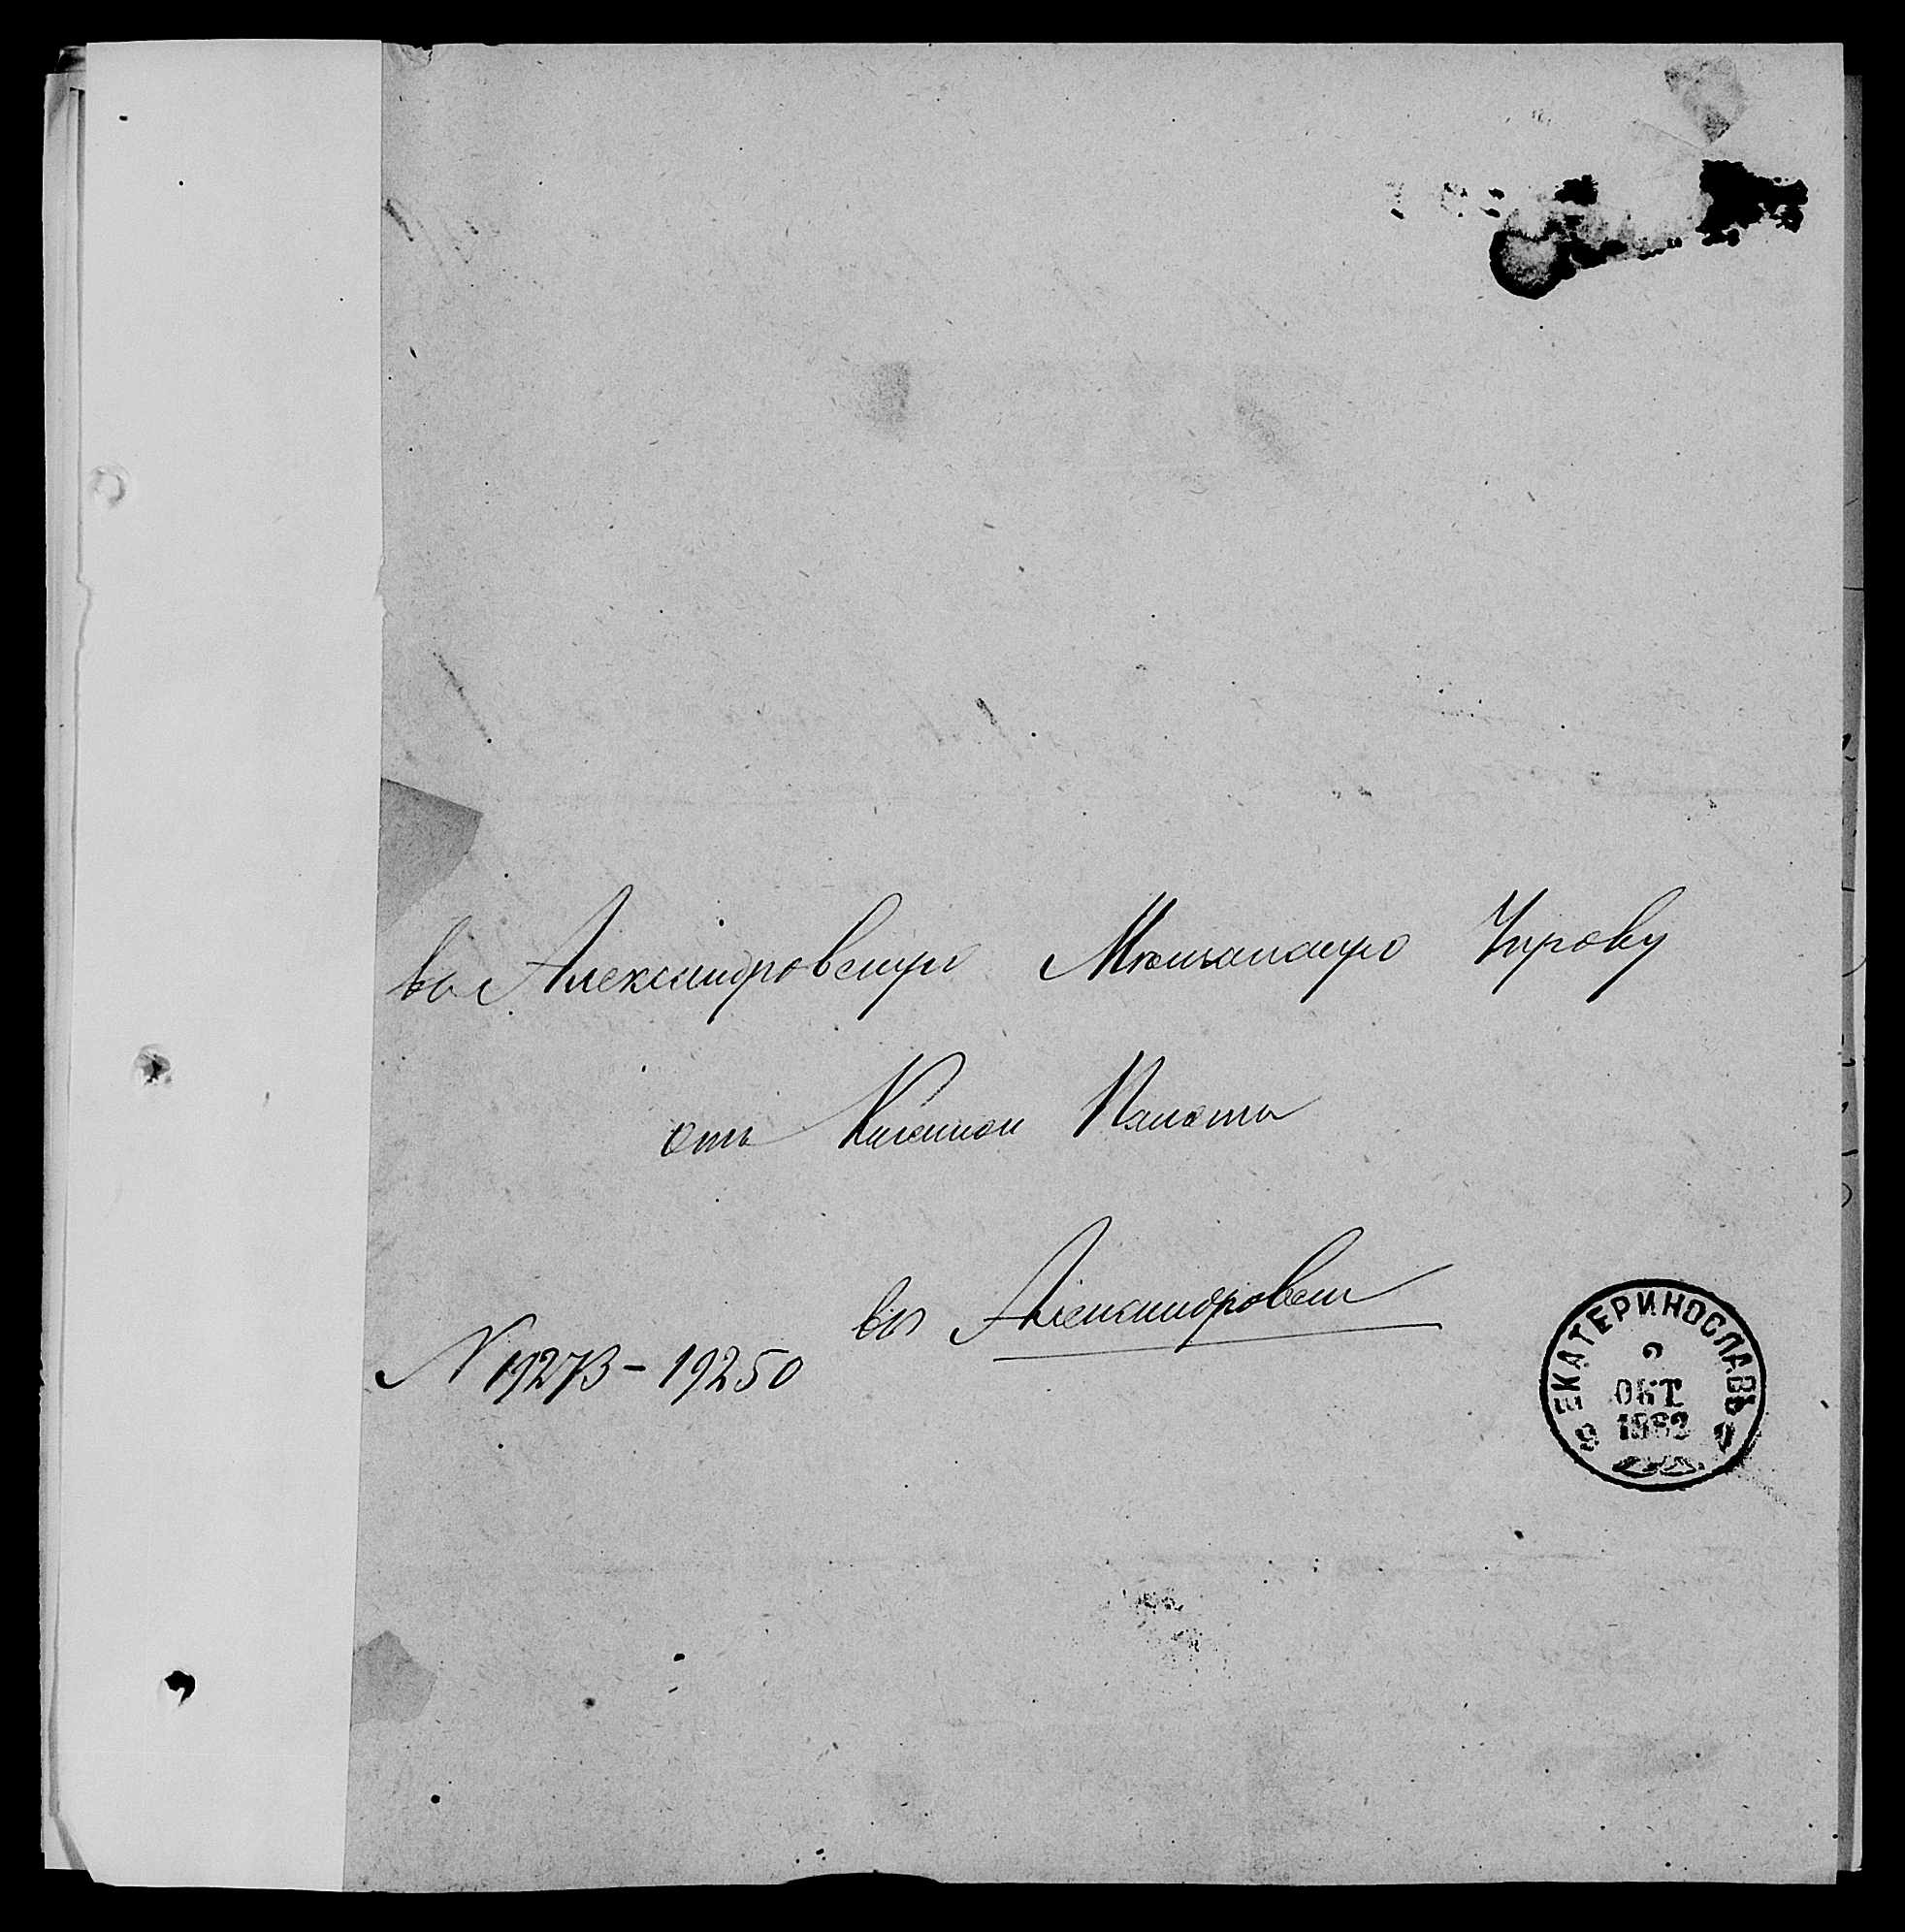 въ Александровскую Мѣщанскую Управу
отъ Казенной Палаты
въ Александровскъ
N 19273 - 19250
ЕКАТЕРИНОСЛАВЪ
ОКТ
1882